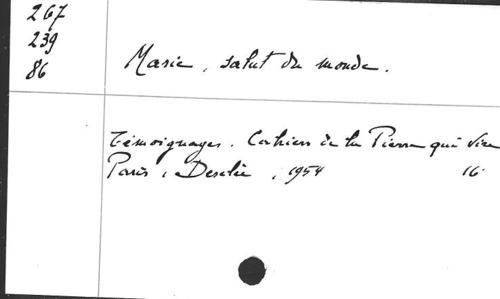 267
239
86
Marie, salut du monde.
Témoignages. Cahiers de la Pierre qui vire
Paris, Desclée, 1954 16